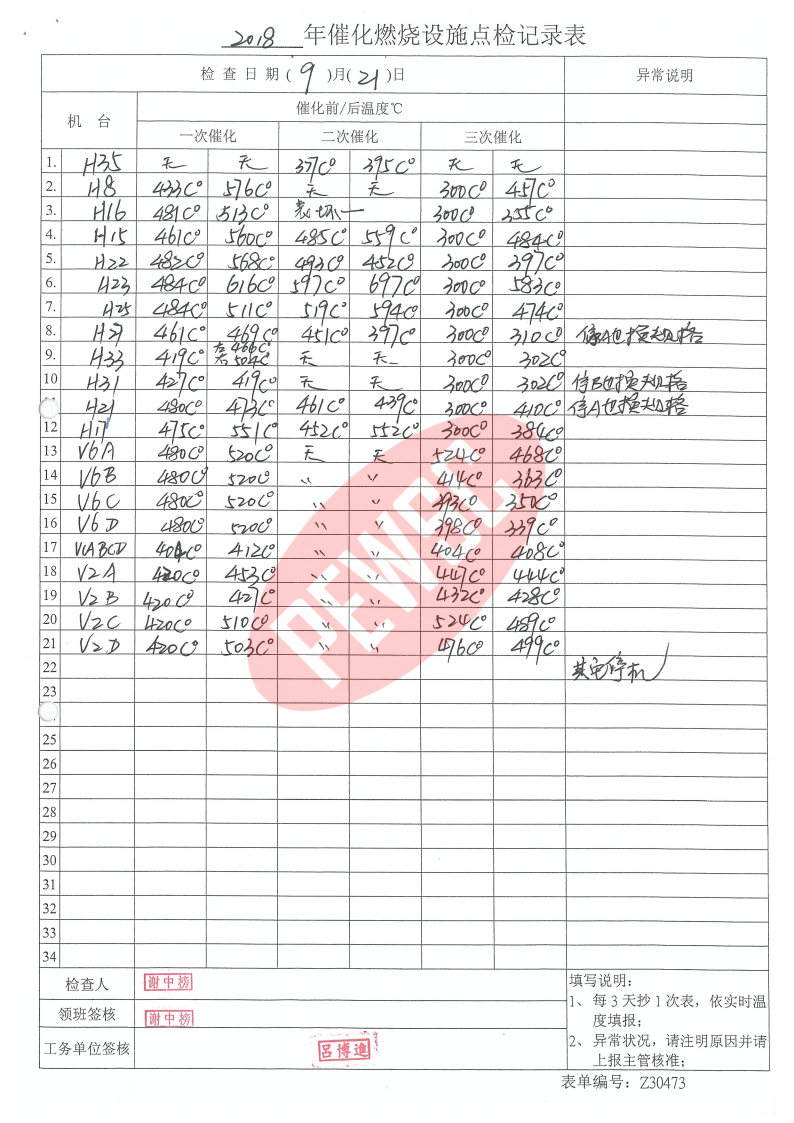 2018 年催化燃烧设施点检记录表
检 查 日 期 ( 9 )月( 21 )日 异常说明
机 台 催化前/后温度℃
一次催化 二次催化 三次催化
1. H35 无 无 377C° 395C° 无 无
2. H8 433C° 576C° 无 无 300C° 457C°
3. H16 481C° 513C° 表坏 300C° 355C°
4. H15 461C° 560C° 485C° 559C° 300C° 484C°
5. H22 482C° 568C° 493C° 452C° 300C° 397C°
6. H23 484C° 616C° 597C° 697C° 300C° 583C°
7. H25 484C° 511C° 519C° 594C° 300C° 474C°
8. H27 461C° 469C° 451C° 397C° 300C° 310C° 停A炉换大规格
9. H33 419C° 左466C° 右504C° 无 无 300C° 302C°
10 H31 427C° 419C° 无 无 300C° 302C° 停B炉换大规格
H21 480C° 473C° 461C° 439C° 300C° 410C° 停A炉换大规格
12 H17 475C° 551C° 452C° 552C° 300C° 384C°
13 V6A 480C° 520C° 无 无 524C° 468C°
14 V6B 480C° 520C° 〃 〃 414C° 363C°
15 V6C 480C° 520C° 〃 〃 393C° 350C°
16 V6D 480C° 520C° 〃 〃 398C° 339C°
17 V1ABCD 404C° 412C° 〃 〃 404C° 408C°
18 V2A 420C° 453C° 〃 〃 447C° 444C°
19 V2B 420C° 427C° 〃 〃 432C° 428C°
20 V2C 420C° 510C° 〃 〃 524C° 489C°
21 V2D 420C° 503C° 〃 〃 476C° 499C°
22 其它停机
23
25
26
27
28
29
30
31
32
33
34
PEWSC
检查人 谢中榜
领班签核 谢中榜
工务单位签核 吕博進
填写说明:
1、 每 3 天抄 1 次表，依实时温
度填报；
2、 异常状况，请注明原因并请
上报主管核准；
表单编号：Z30473